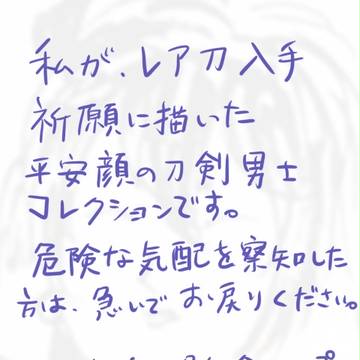 私が、レア刀入手
祈願に描いた
平安顔の刀剣男士
コレクションです。
危険な気配を察知した
方は、急いでお戻りください。